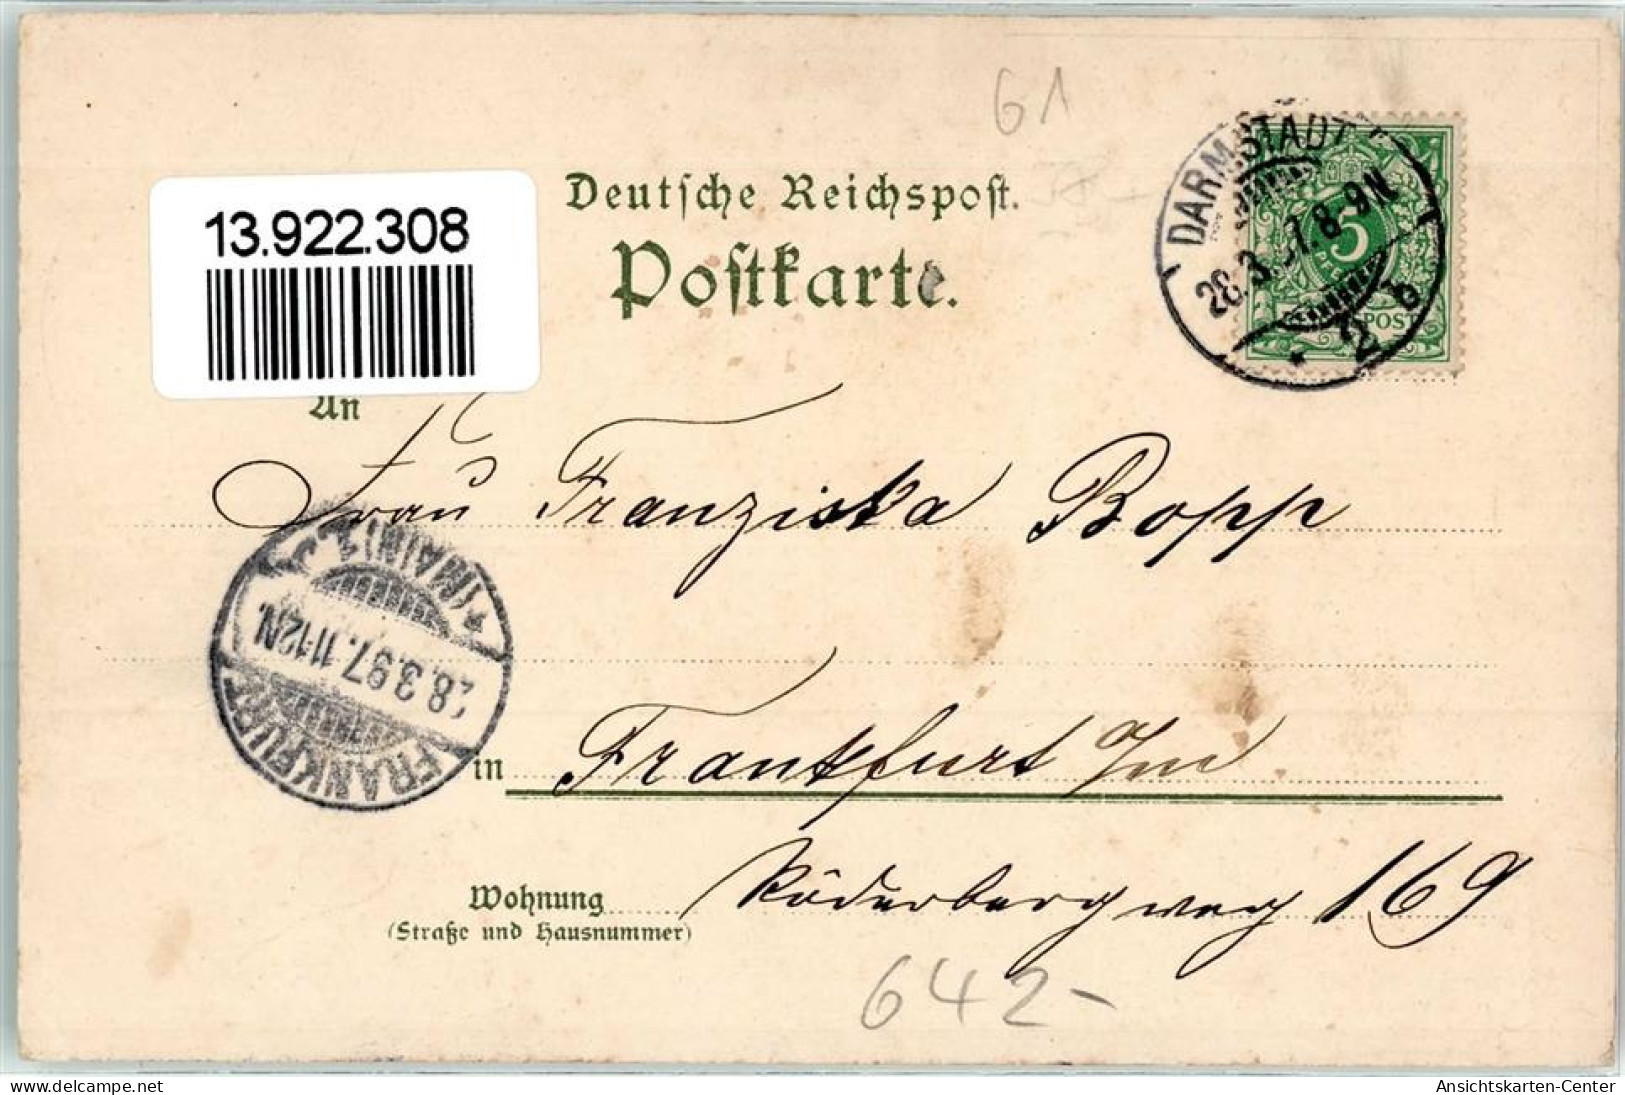 61
13.922.308
Deutsche Reichspost.
Postkarte.
DARMSTADT
28.3.97.8-9N
* 2 b
5
POST
An
Frau Franziska Bopp
FRANKFURT
(MAIN) 1
28.3.97. 11-12N.
in Frankfurt
Wohnung Röderbergweg 169
(Straße und Hausnummer)
642-
delcampe.net
Ansichtskarten-Center